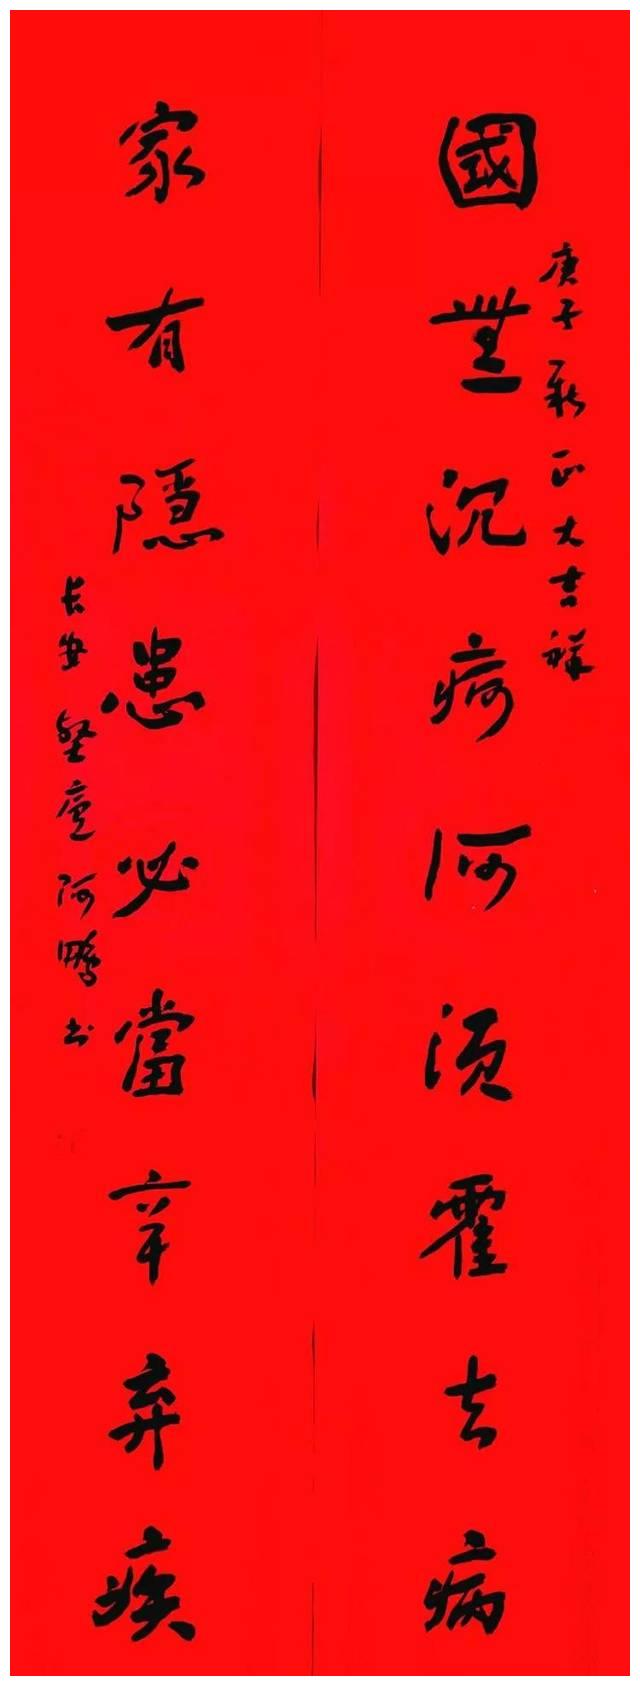 國無沉疴何須霍去病
庚子新正大吉祥
家有隱患必當辛弃疾
長安堅廬阿鵬书